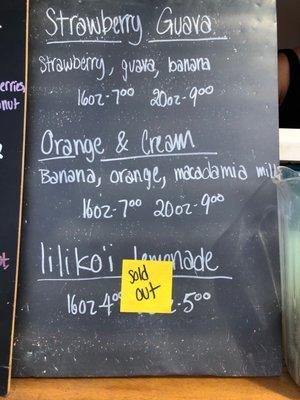 Strawberry Guava
Strawberry, guava, banana
16oz-7⁰⁰ 20oz-9⁰⁰
Orange & Cream
Banana, orange, macadamia milk
16oz-7⁰⁰ 20oz-9⁰⁰
lilikoi lemonade
Sold
out
16oz-4⁰⁰ -5⁰⁰